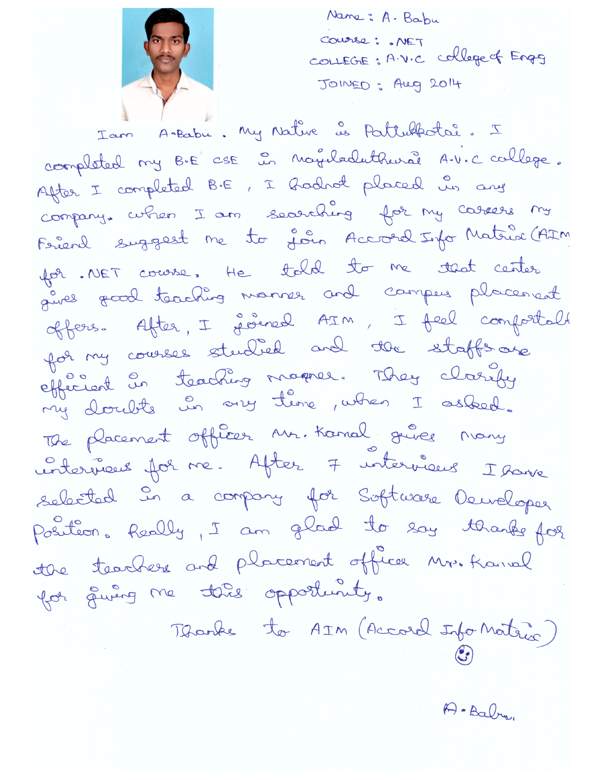 Name : A. Babu
Course : .NET
COLLEGE : A.V.C college of Engg
JOINED : Aug 2014
I am A.Babu. My Native is Pattukkotai. I
completed my B.E CSE in Mayiladuthurai A.V.C college.
After I completed B.E, I hadnot placed in any
company. when I am searching for my careers my
Friend suggest me to join Accord Info Matrix (AIM
for .NET course. He told to me that center
gives good teaching manner and campus placement
offers. After, I joined AIM, I feel comfortabl
for my courses studied and the staffs are
efficient in teaching manner. They clarify
my doubts in any time, when I asked.
The placement officer Mr. Kamal gives many
interviews for me. After 7 interviews I have
selected in a company for Software Developer
Position. Really, I am glad to say thanks for
the teachers and placement officer Mr. Kamal
for giving me this opportunity.
Thanks to AIM (Accord Info Matrix)
A. Babu.